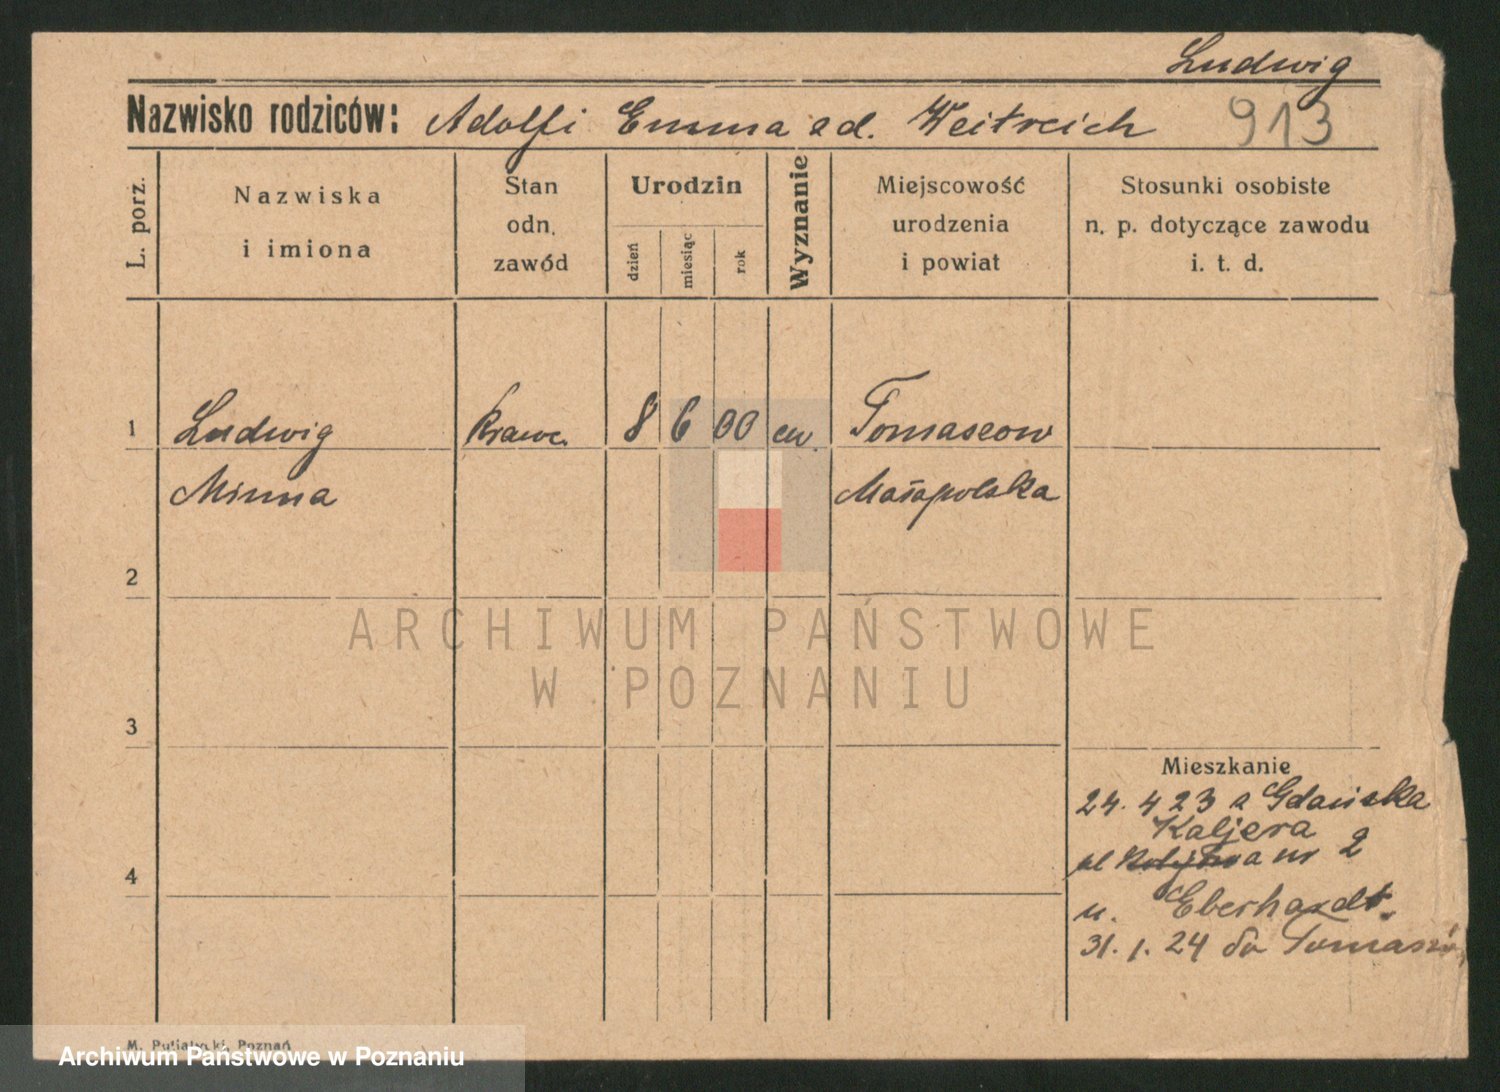 Ludwig
Nazwisko rodziców: Adolfi Emma ad. Weitreich 913
L. porz.
Nazwiska
i imiona
Stan
odn.
zawód
Urodzin
dzień
miesiąc
rok
Wyznanie
Miejscowość
urodzenia
i powiat
Stosunki osobiste
n. p. dotyczące zawodu
i. t. d.
1 Ludwig krawc. 8 6 00 ew. Tomaseow
Minna Małapolska
2
3
4
Mieszkanie
24. 4 23 z Gdańska
Kaljera
ul a nr 2
u. Eberhardt.
31. 1. 24 do Tomaszów
ARCHIWUM PAŃSTWOWE
W POZNANIU
M. Putiatycki, Poznań
Archiwum Państwowe w Poznaniu